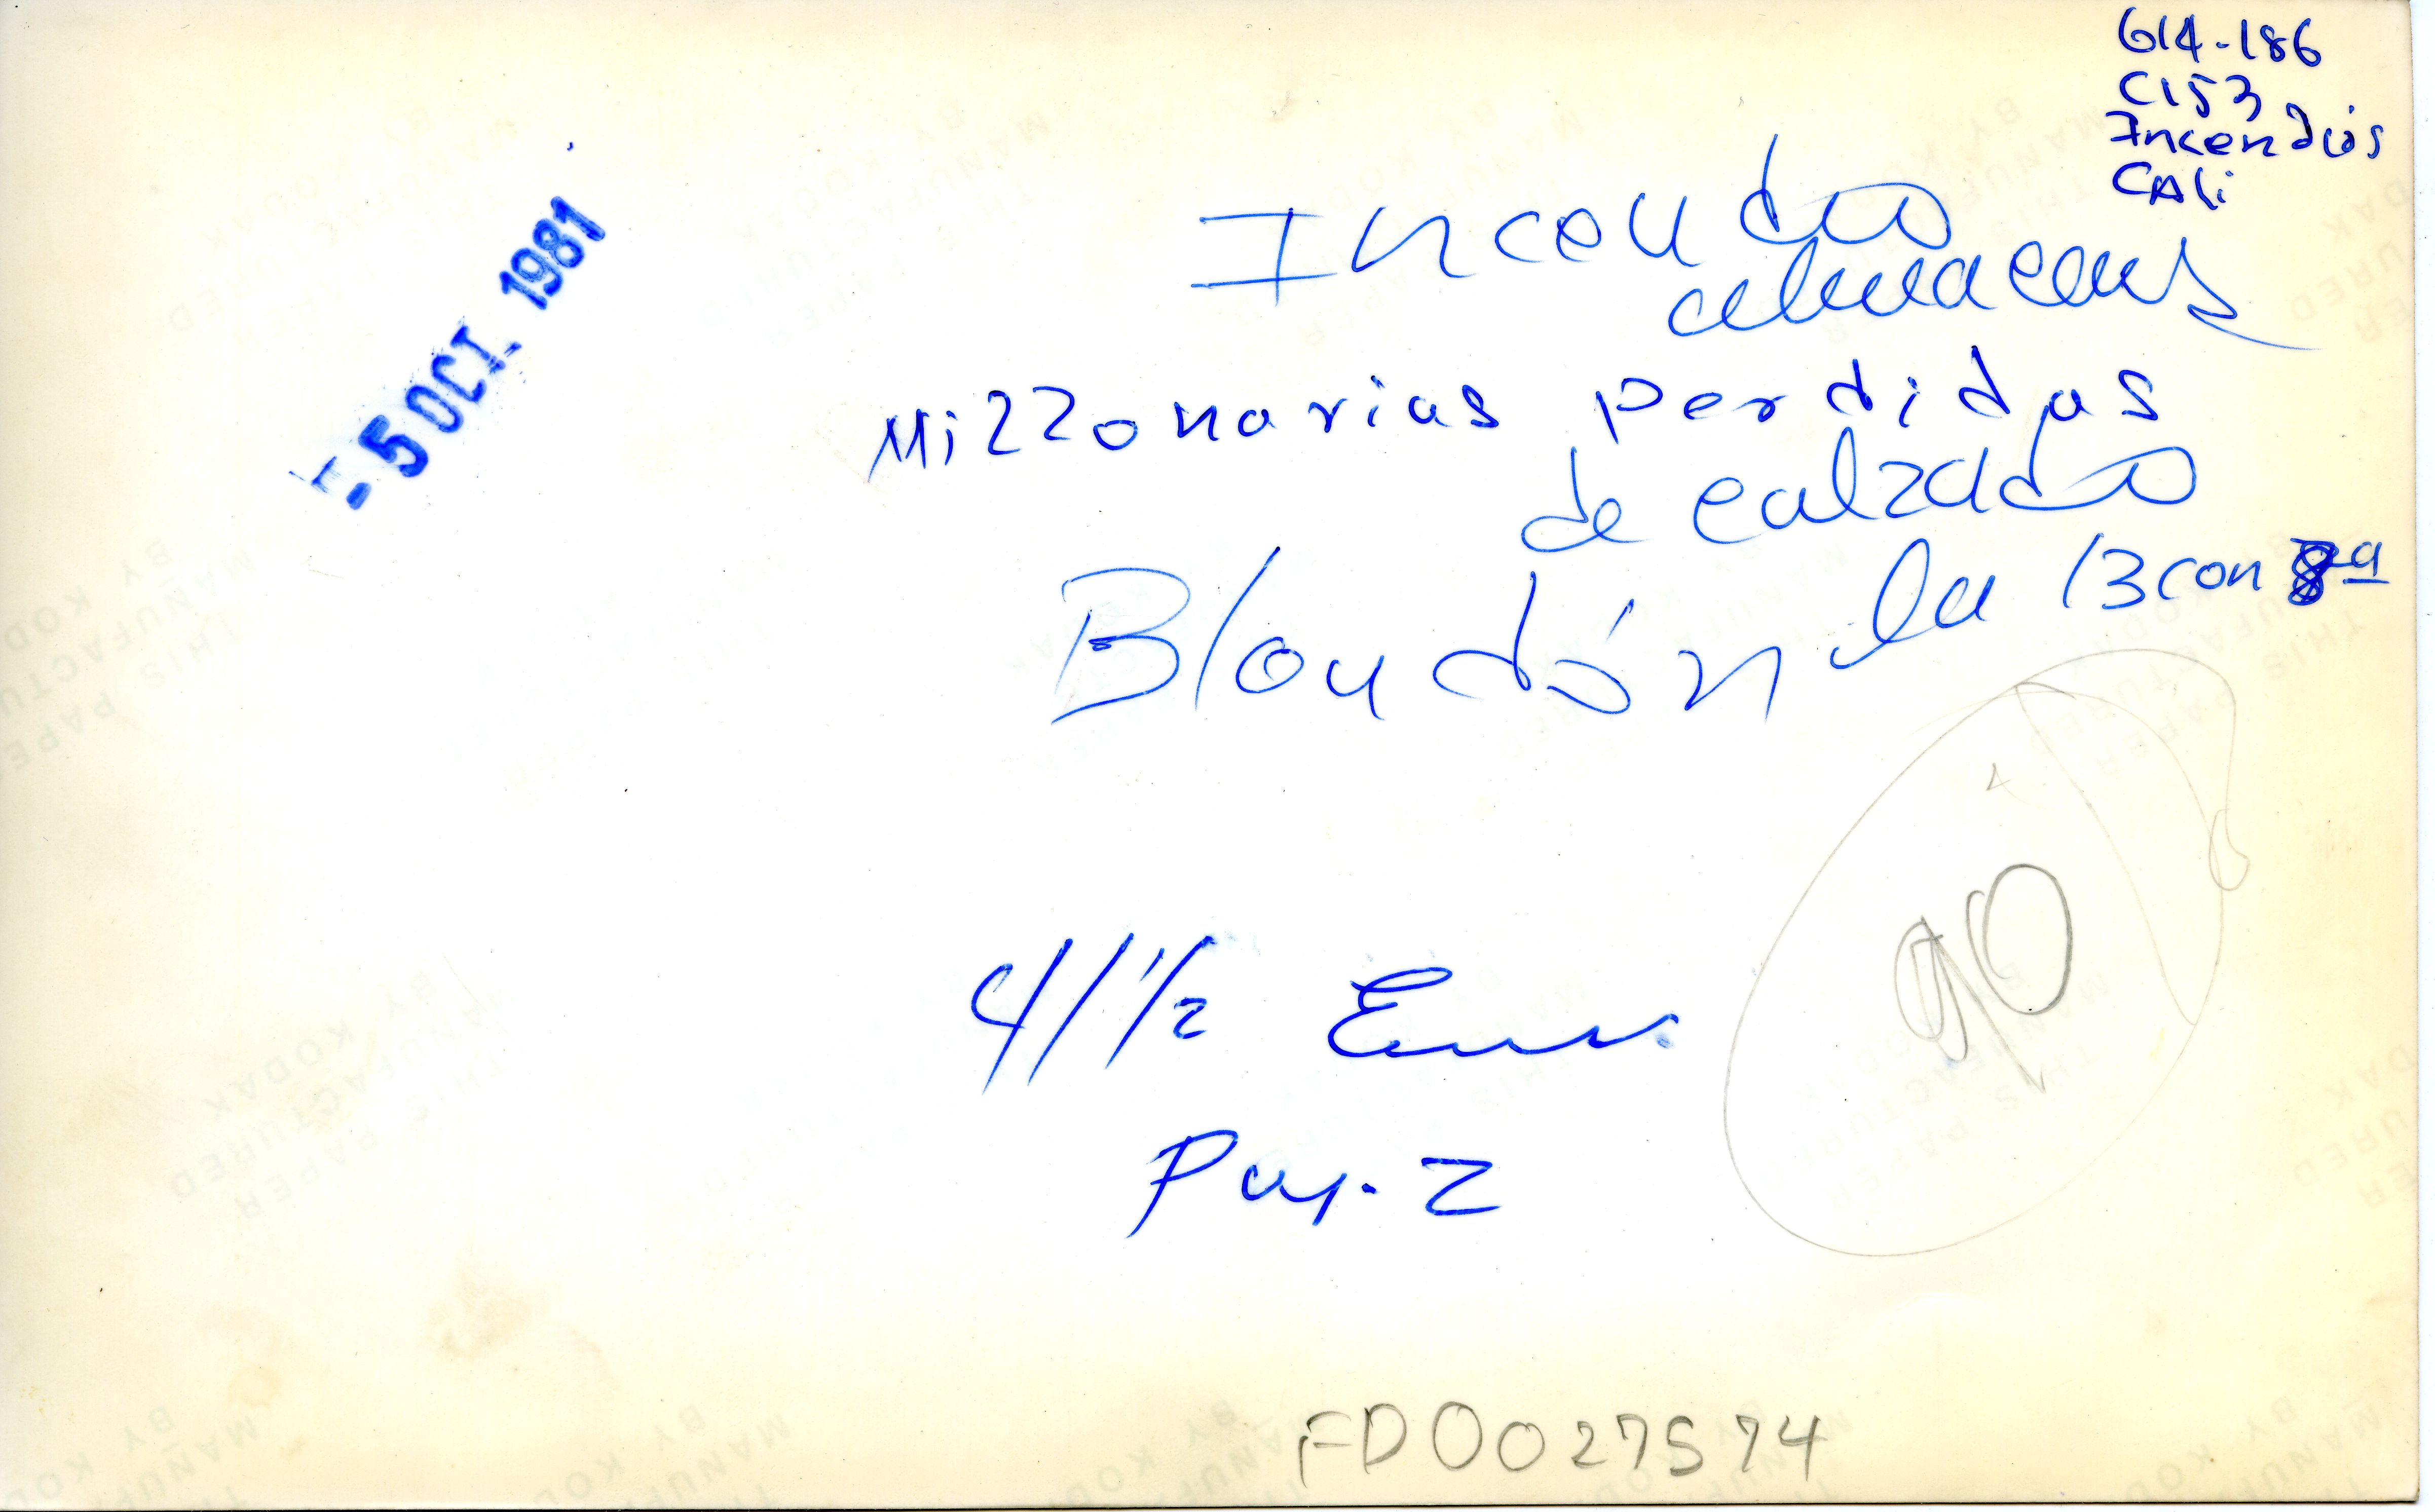 614-186
C153
Incendios
CAli
- 5 OCT. 1981
Incendio
almacenes
Millonarias perdidas
de calzado
Blondón la 13 con 8a
4/1½
Pag. 2
90
FD0027574
THIS PAPER
MANUFACTURED
BY KODAK